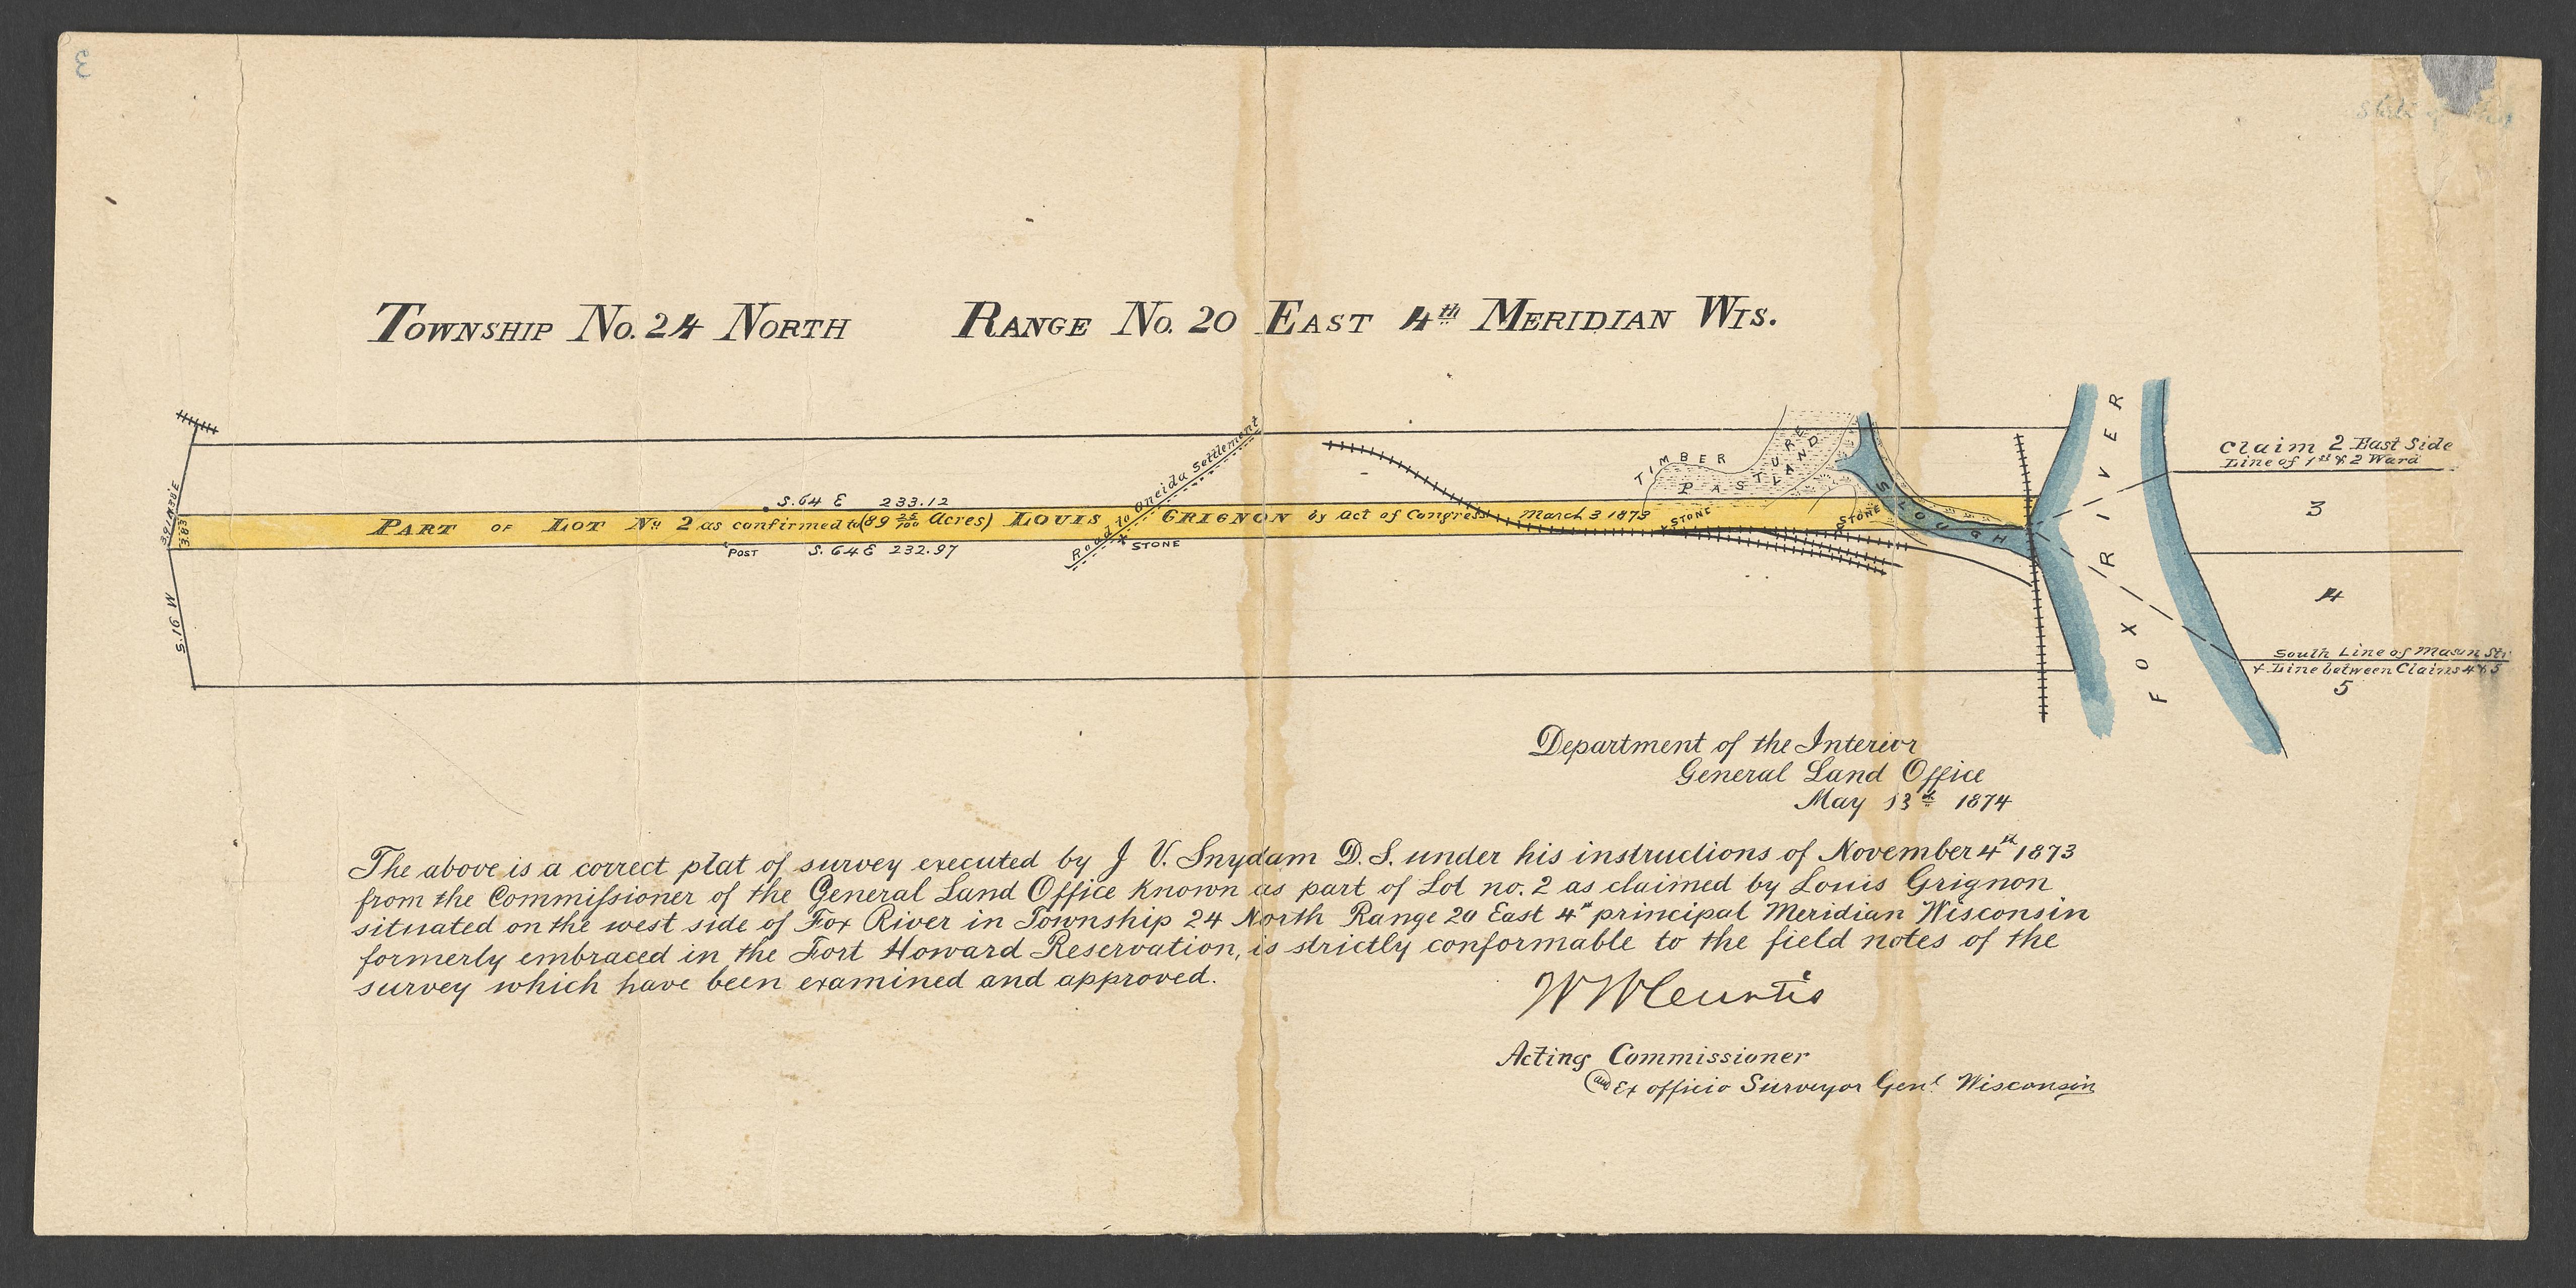 3
TOWNSHIP No. 24 NORTH RANGE No. 20 EAST 4th MERIDIAN WIS.
Road to Oneida Settlement
TIMBER
PASTURE LAND
SLOUGH
FOX RIVER
Claim 2 East Side
Line of 1st & 2 Ward
3
4
South Line of Mason Str
& Line between Claims 4 & 5
5
S. 64 E 233.12
PART OF LOT No 2 as confirmed to (89 25/100 Acres) LOUIS GRIGNON by act of Congress March 3 1873
STONE
STONE
POST S. 64 E 232.97
STONE
3.91 N 38' E
3.83
S. 16 W
Department of the Interior
General Land Office
May 13th 1874
The above is a correct plat of survey executed by J V. Snydam D. S. under his instructions of November 4th 1873
from the Commissioner of the General Land Office known as part of Lot no. 2 as claimed by Louis Grignon
situated on the west side of Fox River in Township 24 North Range 20 East 4th principal Meridian Wisconsin
formerly embraced in the Fort Howard Reservation, is strictly conformable to the field notes of the
survey which have been examined and approved.
W W Curtis
Acting Commissioner
and Ex officio Surveyor Genl. Wisconsin